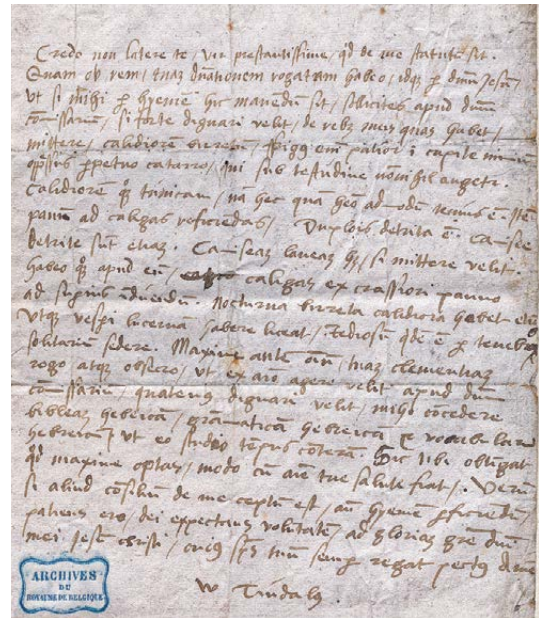 Credo non latere te, vir prestantissime, qd de me statutũ sit.
Quam ob rem / tuaz dñationem rogatam habeo / idqz p dñum Jesũ /
vt si mihi p hyemẽ hic manẽdũ sit / sollicites apud dñum
comissariũ / si forte dignari velit / de rebz meis quas habet /
mittere / calidiorẽ birretũ / frigg eni patior i capite nimiũ
oppressus ppetuo catarro / qui sub testudine nõnihil augetr.
Calidiorẽ qz tunicam / nã hec quã heo admodũ tenuis ẽ. Itẽ
pannũ ad caligas reficiẽdas / Duplois detrita ẽ. Camisee
detrite sũt etiaz. Camiseaz laneaz hz / si mittere velit.
habeo qz apud eũ / caligas ex crassiori panno
ad supius iduẽdũ. Nocturna birreta calidiora habet etiã
vtqz vespi lucernã habere liceat / Tediosũ qdẽ ẽ p tenebras
solitariũ sedere. Maxime autẽ oĩm / tuaz clementiaz
rogo atqz obsecro / vt ex aĩo agere velit apud dñum
comissariũ / quatenus dignari velit / mihi cõcedere
bibleaz hebreicã / grãmaticã hebreicã et vocabulariũ
hebreicũ / vt eo studio tẽpus cõterã. Sic tibi obtingat
qd maxime optas / modo cũ aĩe tue salute fiat /. Verũ
si aliud cõsiliũ de me ceptũ est / ãn hyemẽ pficiẽdũ /
patiens ero / dei expectans voluntatẽ / ad gloriaz gre dñi
mei jesũ christi / cuius spus tuũ semp regat pectus Amẽ
W Tindalus
ARCHIVES
DU
ROYAUME DE BELGIQUE